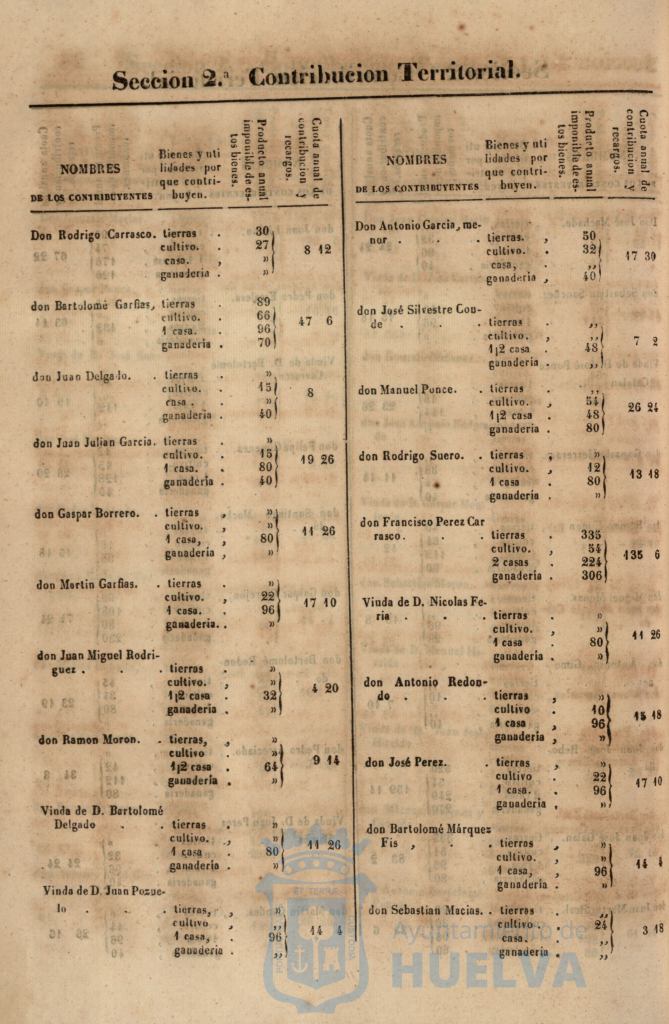 Seccion 2.ª Contribucion Territorial.
NOMBRES
DE LOS CONTRIBUYENTES
Bienes y uti
lidades por
que contri-
buyen.
Producto anual
imponible de es-
tos bienes.
Cuota anual de
contribucion y
recargos.
Don Rodrigo Carrasco. tierras . 30
cultivo. . 27
casa. , » 8 12
ganaderia . »
don Bartolomé Garfias, tierras . 89
cultivo. . 66
1 casa. . 96 47 6
ganaderia . 70
don Juan Delgado. . tierras . »
cultivo. . 15
casa . . » 8
ganaderia . 40
don Juan Julian Garcia. tierras . »
cultivo. . 15
1 casa. . 80 19 26
ganaderia . 40
don Gaspar Borrero. . tierras , »
cultivo. , »
1 casa, . 80 11 26
ganaderia , »
don Martin Garfias. . tierras . »
cultivo. , 22
1 casa. . 96 17 10
ganaderia. . »
don Juan Miguel Rodri-
guez . . . tierras . »
cultivo. , »
1|2 casa . 32 4 20
ganaderia . »
don Ramon Moron. . tierras, , »
cultivo . »
1|2 casa . 64 9 14
ganaderia . »
Viuda de D. Bartolomé
Delgado . . tierras . »
cultivo. , »
1 casa . 80 11 26
ganaderia . »
Viuda de D. Juan Pozue-
lo . . . tierras, , »
cultivo , ,,
1 casa, . 96 14 4
ganaderia . ,,
NOMBRES
DE LOS CONTRIBUYENTES
Bienes y uti
lidades por
que contri-
buyen.
Producto anual
imponible de es-
tos bienes.
Cuota anual de
contribucion y
recargos.
Don Antonio Garcia, me-
nor . . . tierras. , 50
cultivo. . 32
casa, . ,, 17 30
ganaderia , 40
don José Silvestre Con-
de . . . tierras . ,,
cultivo. . ,,
1|2 casa . 48 7 2
ganaderia . ,,
don Manuel Ponce. . tierras . ,,
cultivo. , 54
1|2 casa . 48 26 24
ganaderia . 80
don Rodrigo Suero. . tierras , »
cultivo. , 12
1 casa . 80 13 18
ganaderia . »
don Francisco Perez Car
rasco. . . tierras . 335
cultivo. , 54
2 casas . 224 135 6
ganaderia . 306
Viuda de D. Nicolas Fe-
ria . . . tierras . »
cultivo. , »
1 casa . 80 11 26
ganaderia . »
don Antonio Redon-
do . . . tierras , »
cultivo . 10
1 casa , 96 15 18
ganaderia , »
don José Perez. . tierras , »
cultivo . 22
1 casa. . 96 17 10
ganaderia , »
don Bartolomé Márquez
Fis , . tierras , »
cultivo. , »
1 casa, . 96 14 4
ganaderia . »
don Sebastian Macias. . tierras . ,,
cultivo. . 24
casa. . ,, 3 18
ganaderia . ,,
Ayuntamiento de
HUELVA